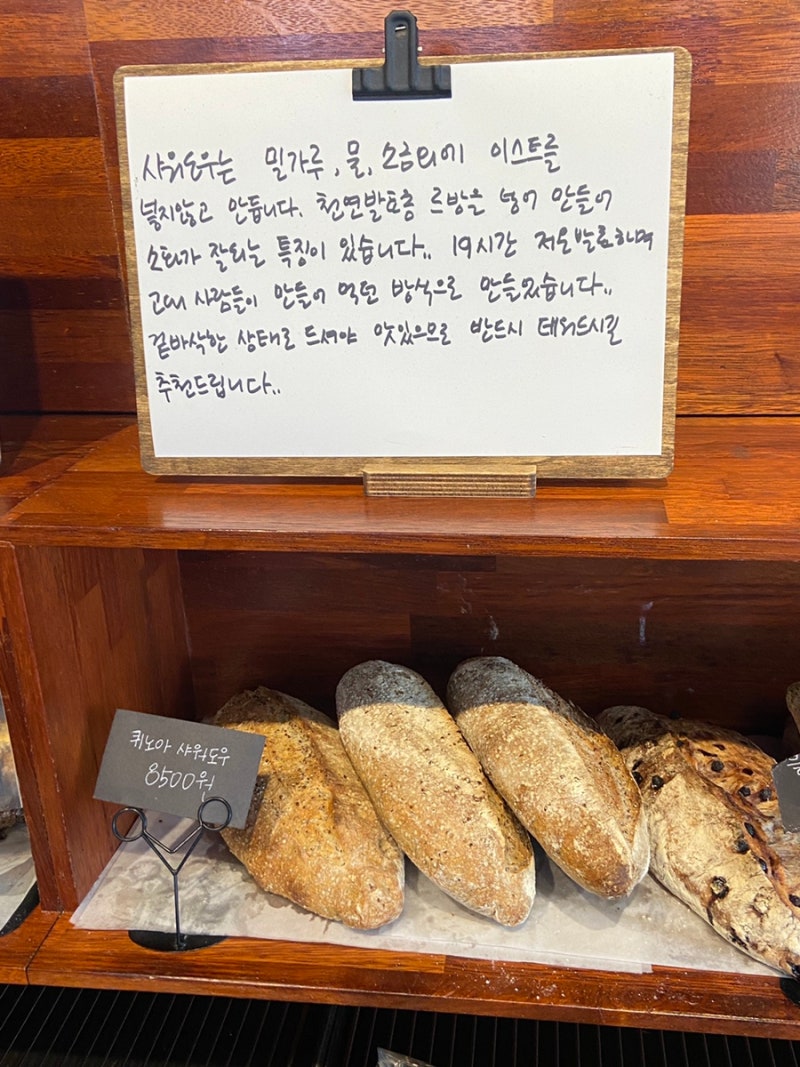 샤워도우는 밀가루, 물, 소금외에 이스트를
넣지않고 안듭니다. 천연발효종 르방을 넣어 만들어
소화가 잘되는 특징이 있습니다.. 19시간 저온발효하며
고대 사람들이 만들어 먹던 방식으로 만들었습니다..
겉바삭한 상태로 드셔야 맛있으므로 반드시 데워드시길
추천드립니다..
퀴노아 샤워도우
8500원